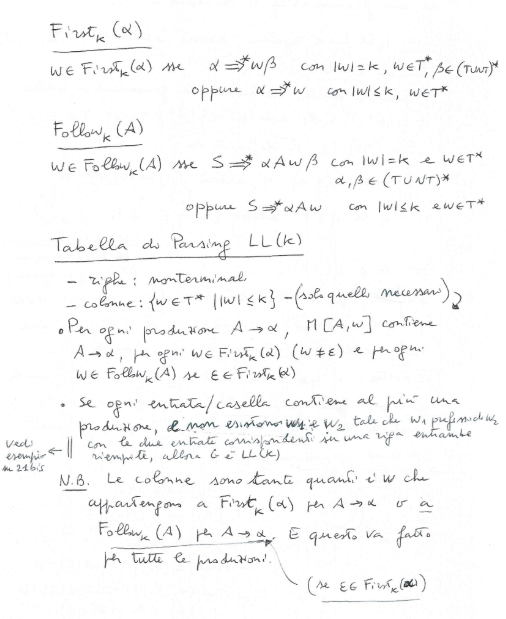 First_k (α)
w ∈ First_k(α) sse α ⇒* wβ con |w|=k, w∈T*, β∈(T∪NT)*
oppure α ⇒* w con |w|≤k, w∈T*
Follow_k (A)
w ∈ Follow_k(A) sse S ⇒* αAwβ con |w|=k e w∈T*
α,β ∈ (T∪NT)*
oppure S ⇒* αAw con |w|≤k e w∈T*
Tabella di Parsing LL(k)
- righe: nonterminali
- colonne: {w∈T* | |w|≤k} - (solo quelle necessarie)
• Per ogni produzione A→α, M[A,w] contiene
A→α, per ogni w∈First_k(α) (w≠ε) e per ogni
w∈Follow_k(A) se ε∈First_k(α)
• Se ogni entrata/casella contiene al più una
produzione, e non esistono w1 e w2 tale che w1 prefisso di w2
con le due entrate corrispondenti su una riga entrambe
riempite, allora G è LL(k)
vedi
esempio
su 21bis
N.B. Le colonne sono tante quanti i w che
appartengono a First_k(α) per A→α o a
Follow_k(A) per A→α. E questo va fatto
per tutte le produzioni.
(se ε∈First_k(α))